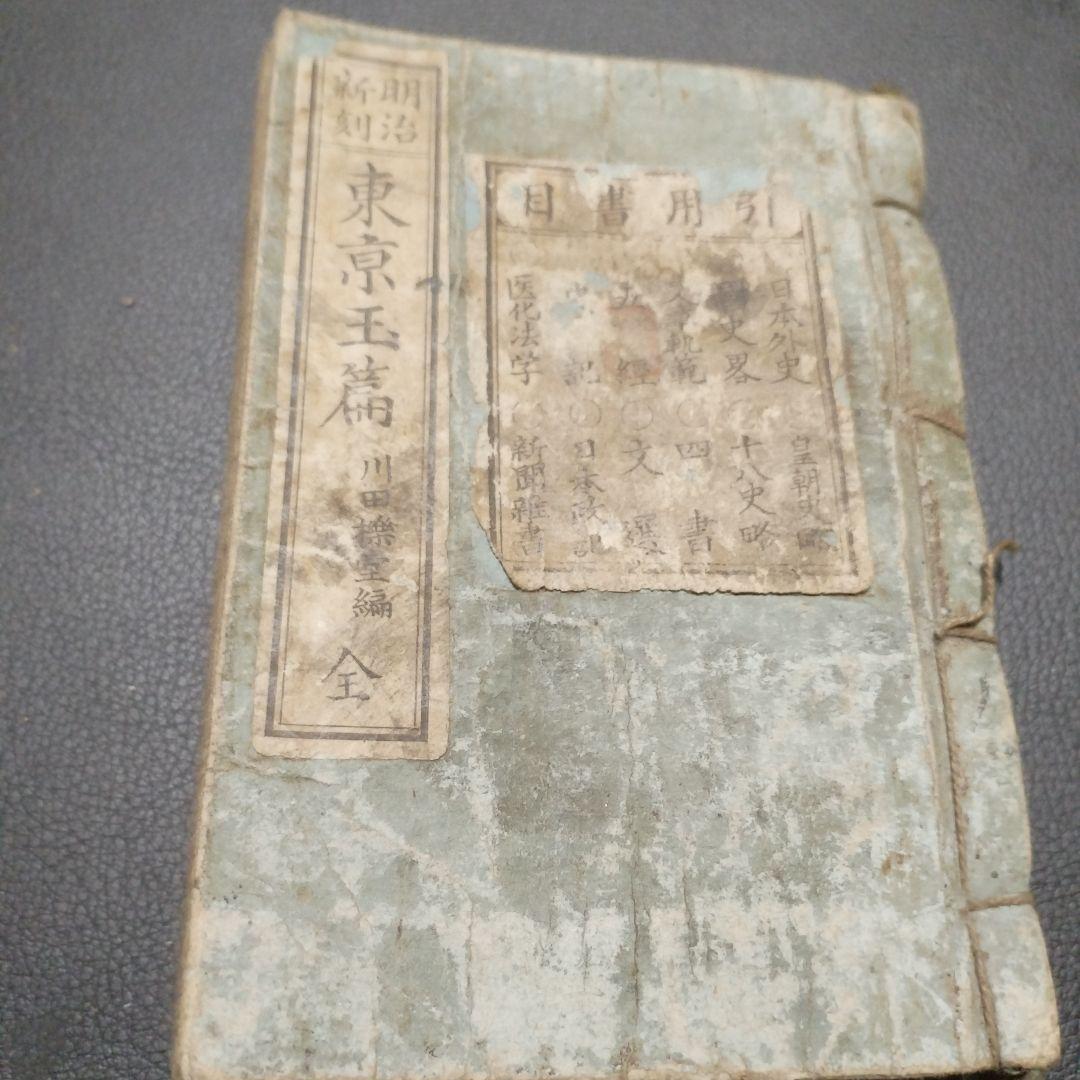 明治
新刻
東亰玉篇
川田櫟堂編
全
引用書目
日本外史 〇 皇朝史略
史畧 〇 十八史略
文章軌範 〇 四書
五經 〇 文選
史記 〇 日本政記
医化法学 〇 新聞雜書